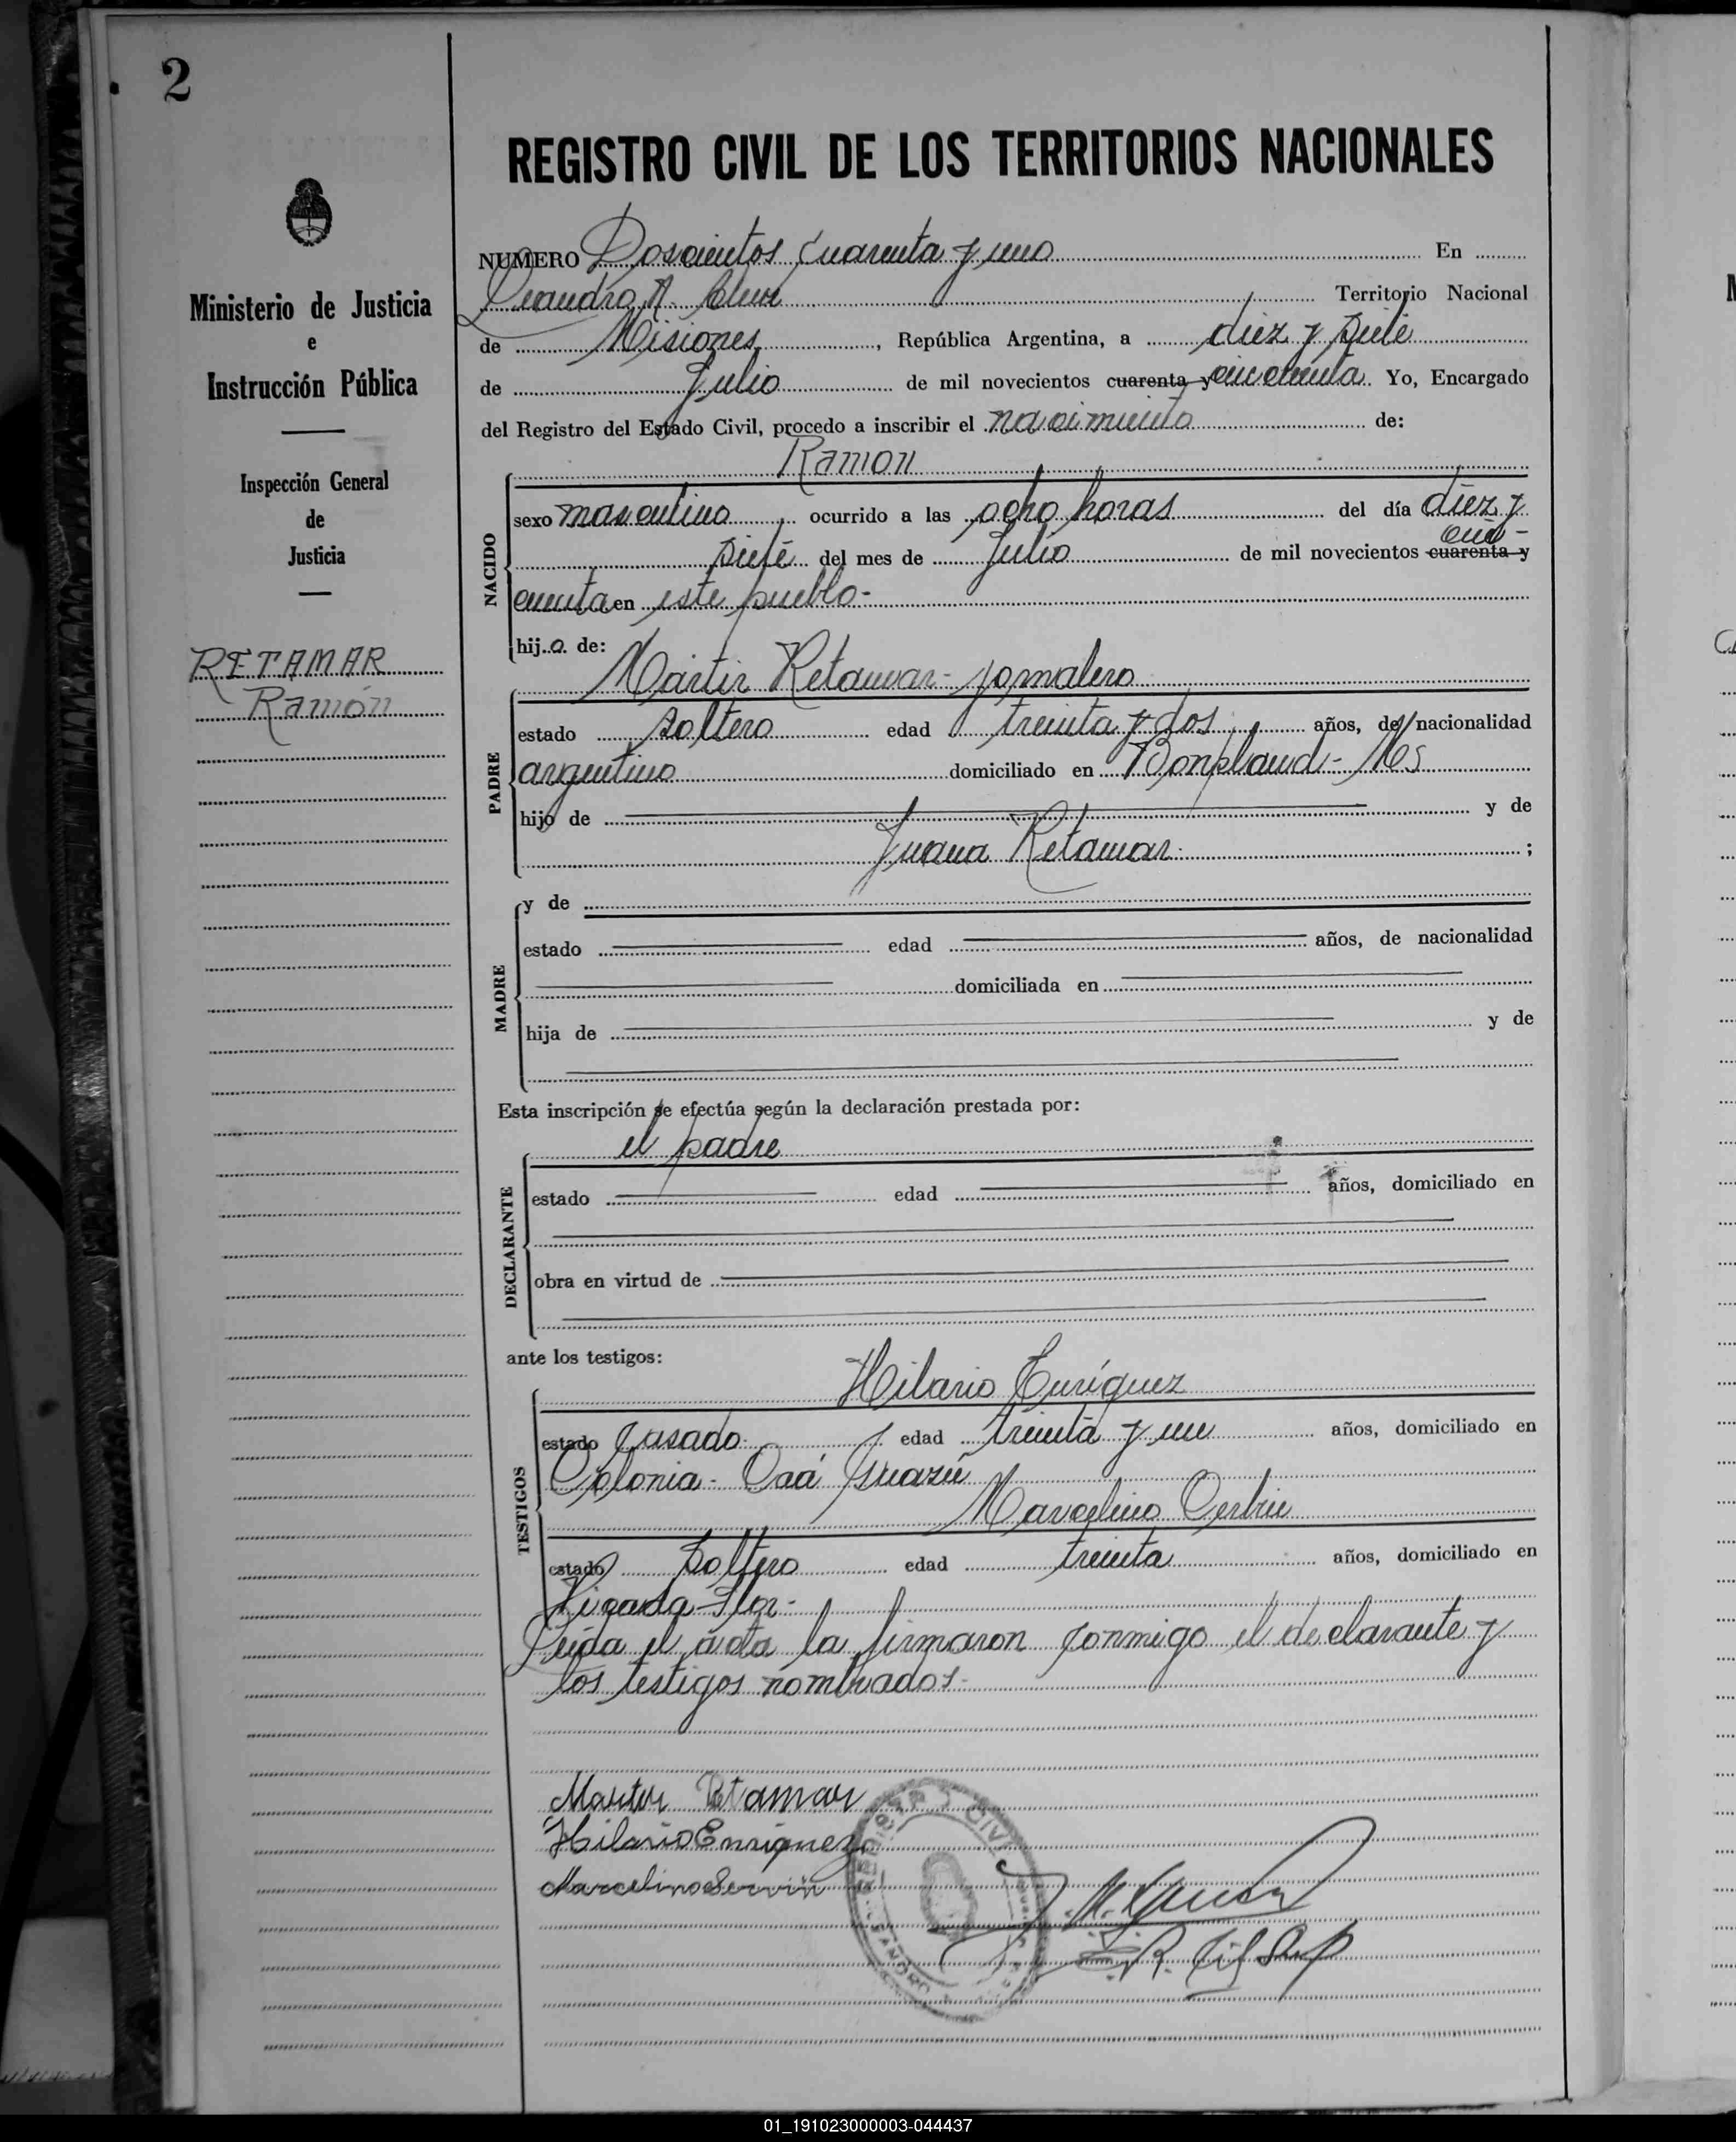 2
REGISTRO CIVIL DE LOS TERRITORIOS NACIONALES
Ministerio de Justicia
e
Instrucción Pública
Inspección General
de
Justicia
RETAMAR
Ramón
NUMERO Doscientos cuarenta y uno En
Leandro N. Alem Territorio Nacional
de Misiones, República Argentina, a diez y siete
de Julio de mil novecientos cuarenta y cincuenta. Yo, Encargado
del Registro del Estado Civil, procedo a inscribir el nacimiento de:
Ramon
NACIDO
sexo masculino ocurrido a las ocho horas del día diez y
siete del mes de Julio de mil novecientos cuarenta y cin-
cuenta en este pueblo-
hijo de:
Martir Retamar- jornalero
PADRE
estado soltero edad treinta y dos años, de nacionalidad
argentino domiciliado en Bonpland- Ms
hijo de y de
Juana Retamar ;
MADRE
y de
estado edad años, de nacionalidad
domiciliada en
hija de y de
Esta inscripción se efectúa según la declaración prestada por:
el padre
DECLARANTE
estado edad años, domiciliado en
obra en virtud de
ante los testigos:
Hilario Enríquez
TESTIGOS
estado casado edad treinta y un años, domiciliado en
Colonia- Caá Guazú
Marcelino
estado soltero edad treinta años, domiciliado en
Picada Flor-
Leída el acta la firmaron conmigo el declarante y
los testigos nombrados-
Martir Retamar
Hilario Enriquez
Marcelino Servin
REGISTRO CIVIL
01_191023000003-044437